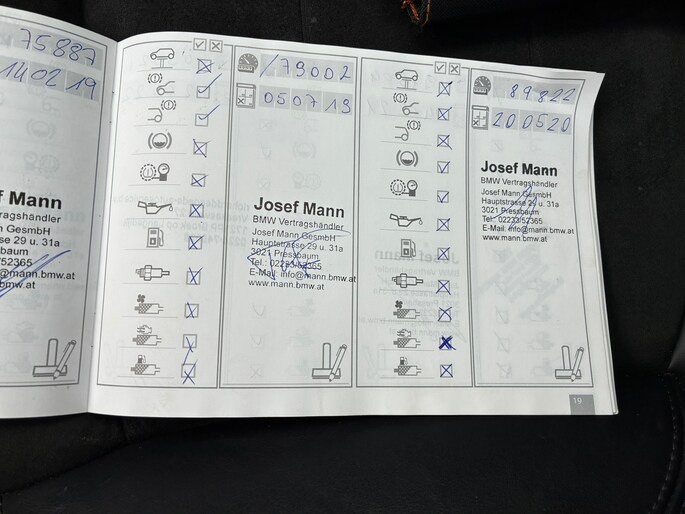 75887
14 02 19
f Mann
ertragshändler
n GesmbH
asse 29 u. 31a
baum
/52365
@mann.bmw.at
bmw.at
/79002
05 07 19
Josef Mann
BMW Vertragshändler
Josef Mann GesmbH
Hauptstrasse 29 u. 31a
3021 Pressbaum
Tel.: 02233/52365
E-Mail: info@mann.bmw.at
www.mann.bmw.at
89822
20 05 20
Josef Mann
BMW Vertragshändler
Josef Mann GesmbH
Hauptstrasse 29 u. 31a
3021 Pressbaum
Tel.: 02233/52365
E-Mail: info@mann.bmw.at
19